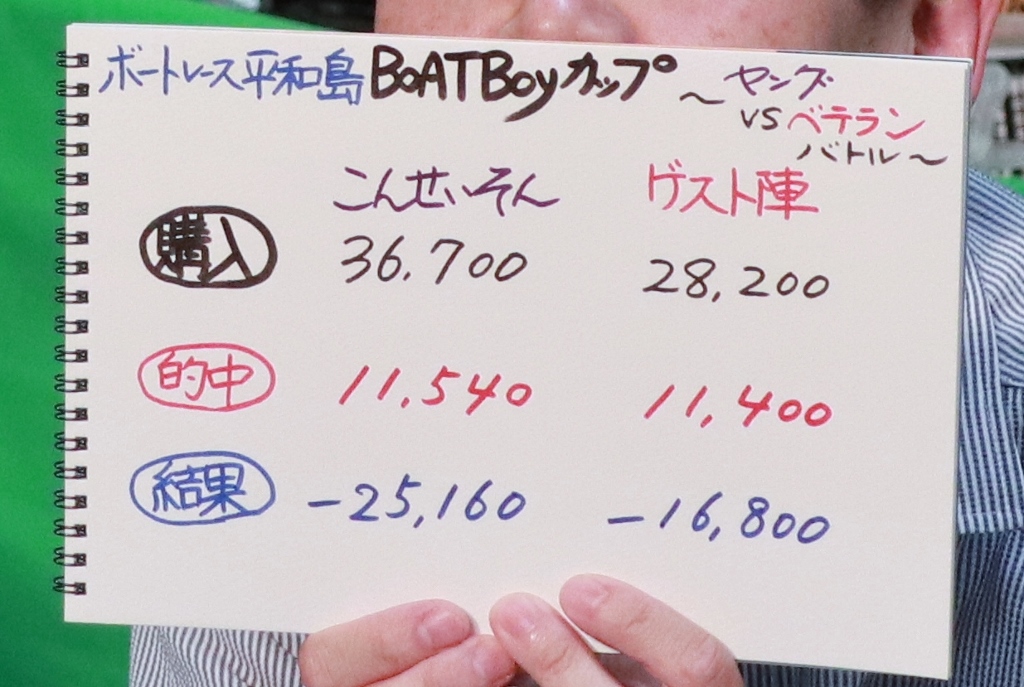 ボートレース平和島 BOATBoyカップ ～ヤング
VSベテラン
バトル～
こんせいそん ゲスト陣
購入 36,700 28,200
的中 11,540 11,400
結果 -25,160 -16,800